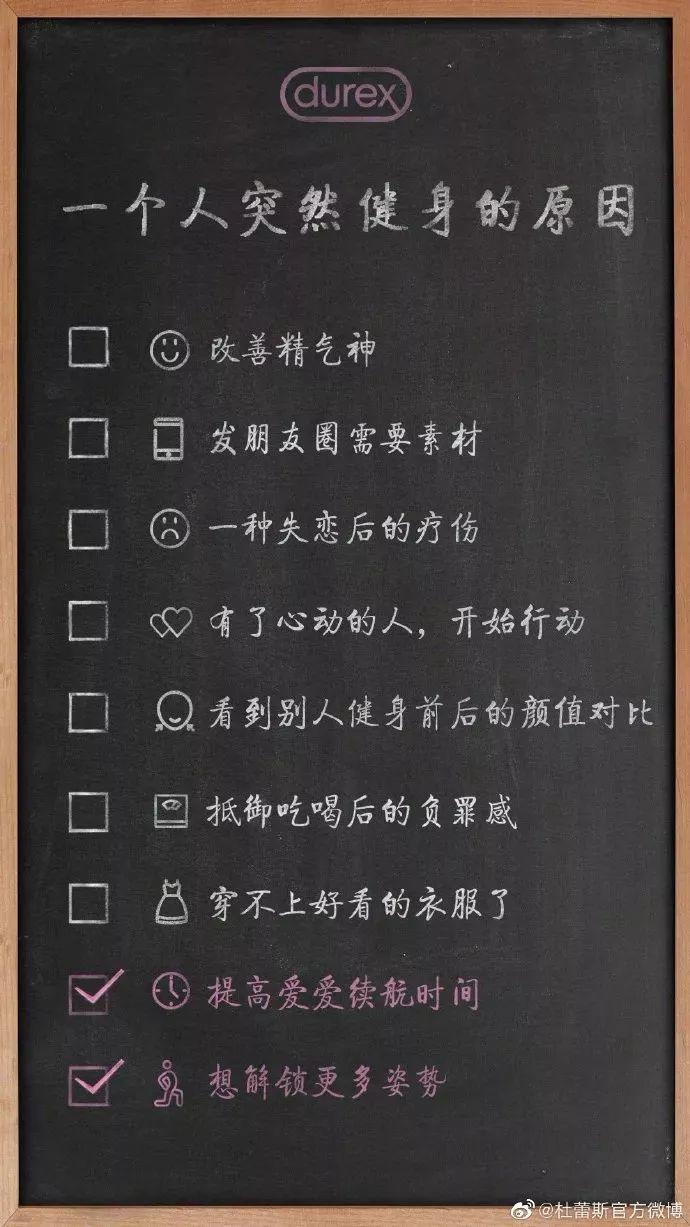 durex
一个人突然健身的原因
改善精气神
发朋友圈需要素材
一种失恋后的疗伤
有了心动的人，开始行动
看到别人健身前后的颜值对比
抵御吃喝后的负罪感
穿不上好看的衣服了
提高爱爱续航时间
想解锁更多姿势
@杜蕾斯官方微博